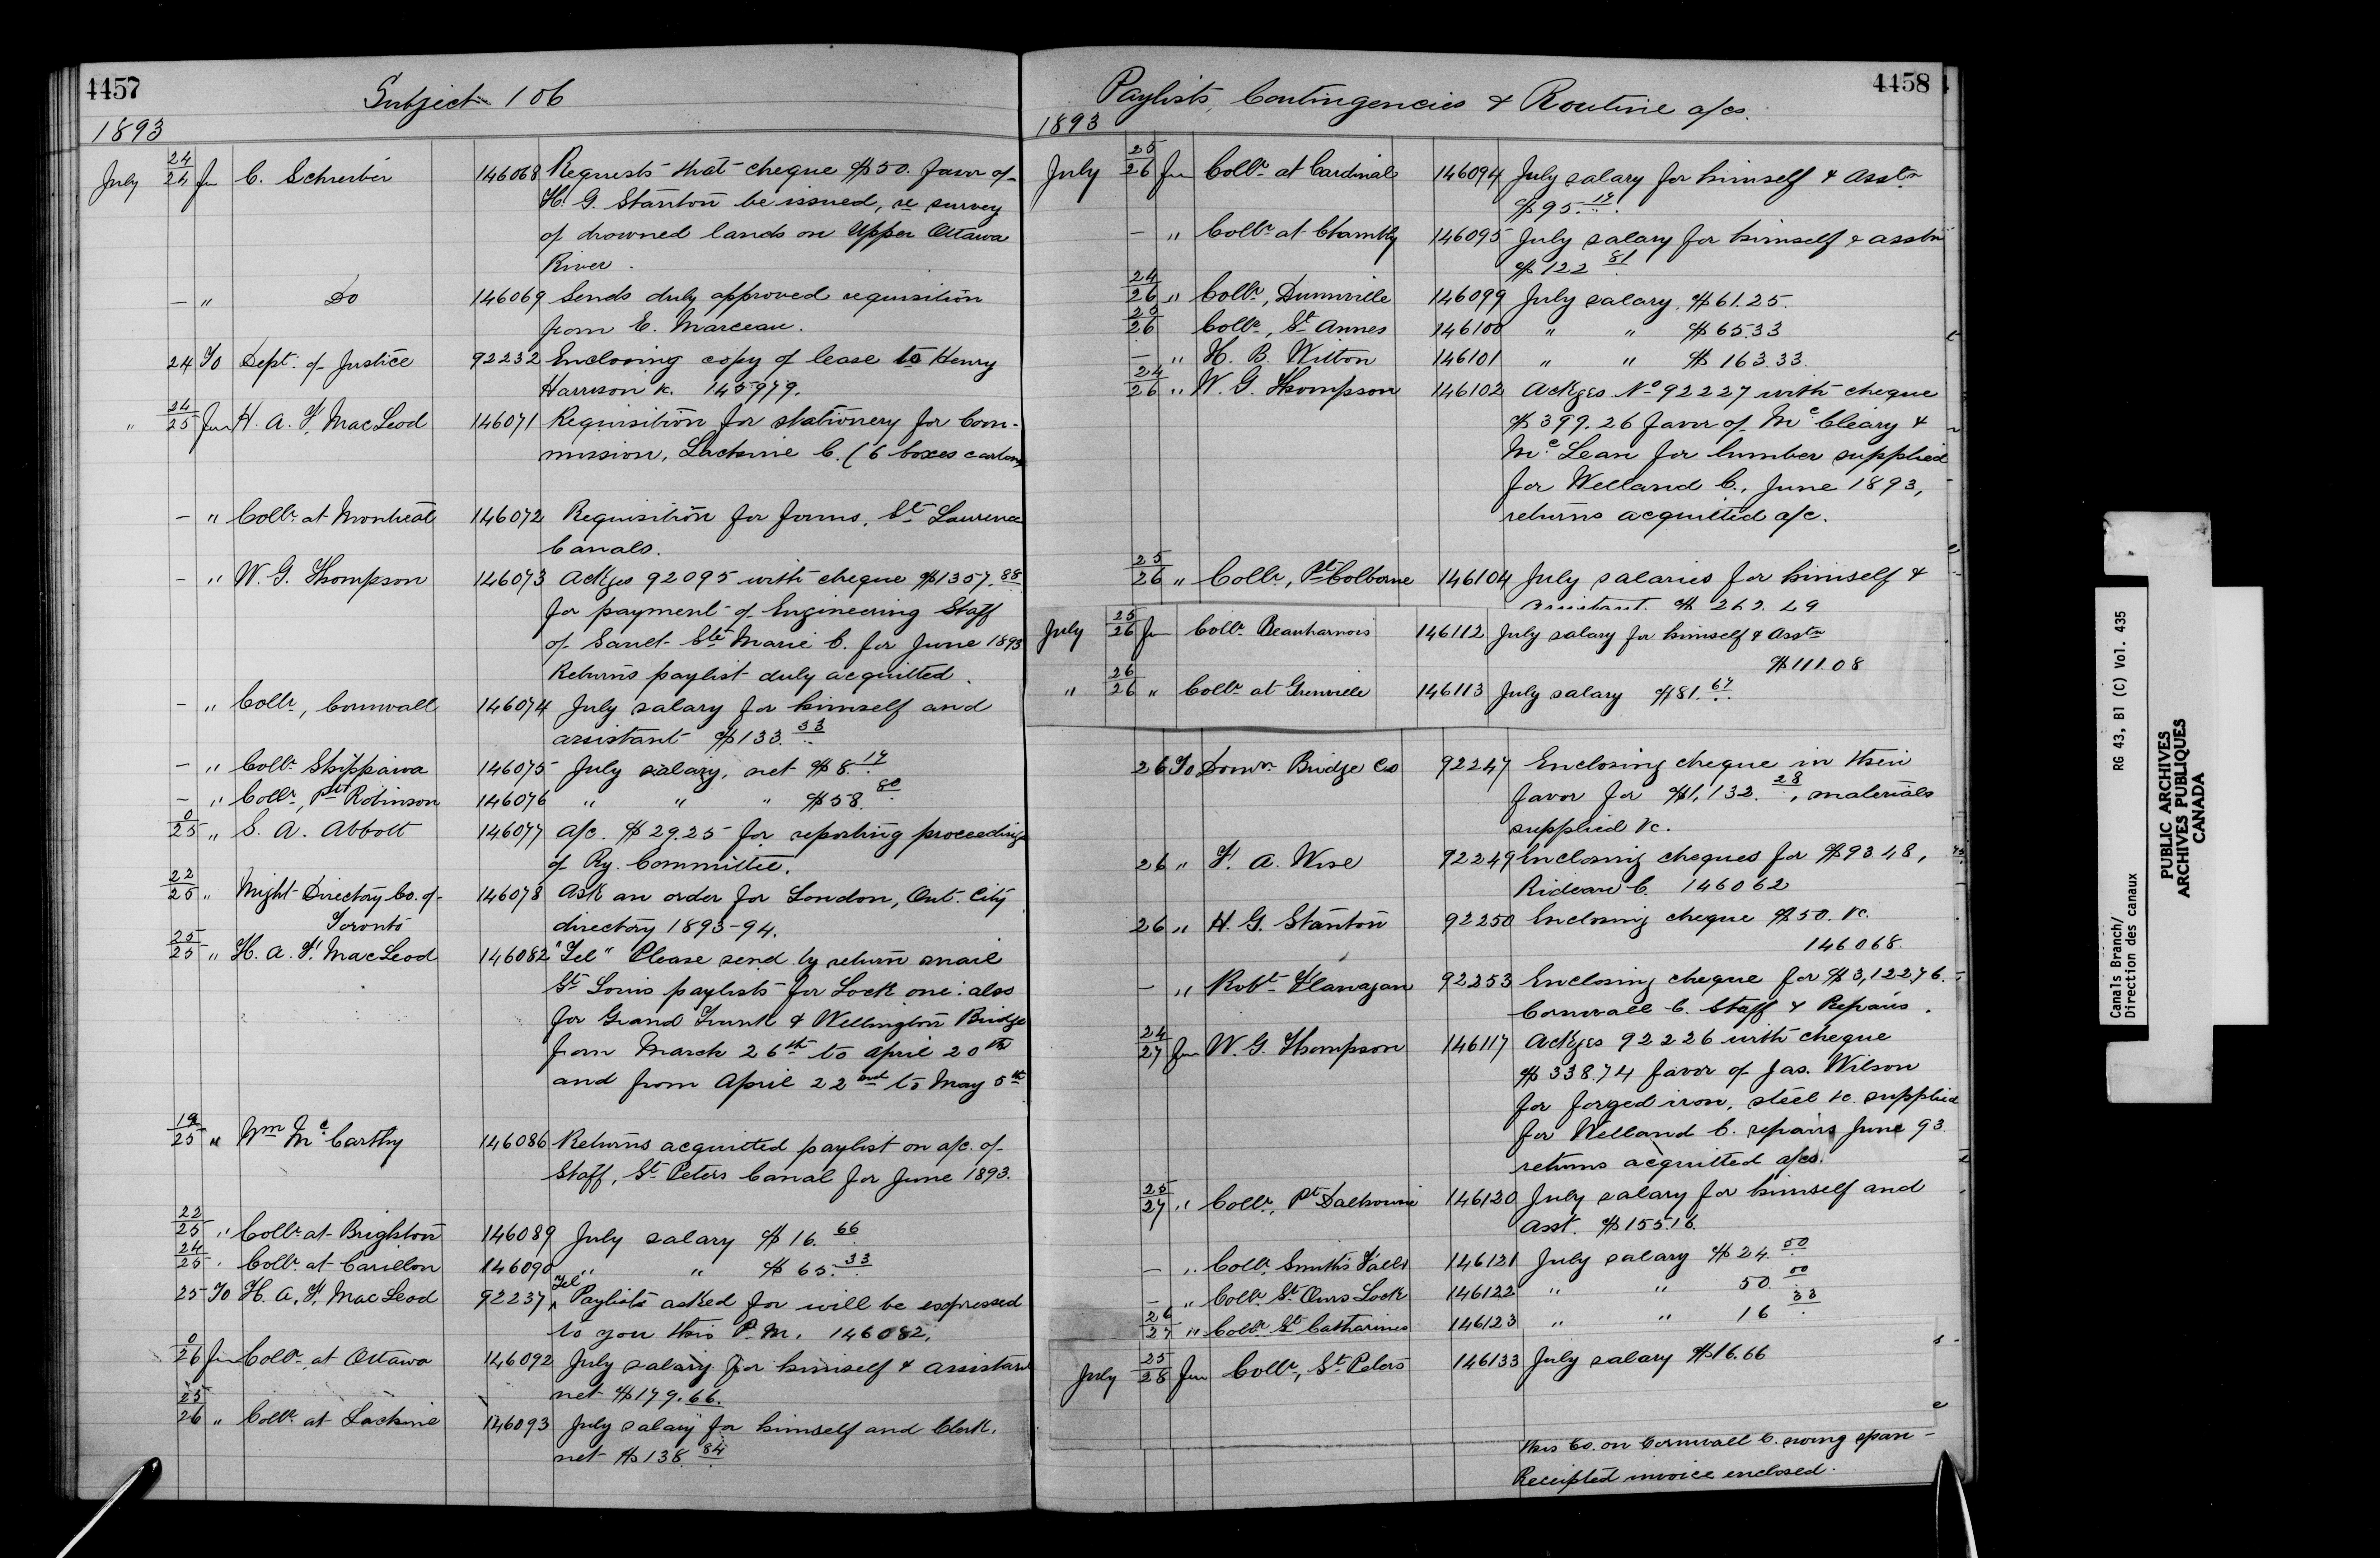 4457
Subject 106
1893
July 24/24 fm C. Schreiber 146068 Requests that cheque $50. favor of
H. G. Stanton be issued, re survey
of drowned lands on Upper Ottawa
River.
— " Do 146069 Sends duly approved requisition
from E. Marceau.
24 To Dept. of Justice 92232 Enclosing copy of lease to Henry
Harrison &c. 145979.
" 24/25 fm H. A. F. MacLeod 146071 Requisition for stationery for Com-
mission, Lachine C. (6 boxes carbon)
— " Collr at Montreal 146072 Requisition for forms, St Laurence
Canals.
— " W. G. Thompson 146073 Ackges 92095 with cheque $1357.88
for payment of Engineering Staff
of Sault Ste Marie C. for June 1893
Returns paylist duly acquitted.
— " Collr, Cornwall 146074 July salary for himself and
assistant $133.33
— " Collr Chippawa 146075 July salary, net $8.17
— " Collr, Pt Robinson 146076 " " " $58.80
0/25 " S. A. Abbott 146077 a/c. $29.25 for reporting proceedings
of Ry. Committee.
22/25 " Might Directory Co. of 146078 Ask an order for London, Ont. City
Toronto directory 1893-94.
25/25 " H. A. F. MacLeod 146082 "Tel" Please send by return mail
St Louis paylists for Lock one: also
for Grand Trunk & Wellington Bridge
from March 26th to April 20th
and from April 22nd to May 5th
19/25 " Wm McCarthy 146086 Returns acquitted paylist on a/c. of
Staff, St Peters Canal for June 1893.
22/25 " Collr at Brighton 146089 July salary $16.66
24/25 " Collr at Carillon 146090 " " $65.33
25 To H. A. F. MacLeod 92237 Tel Paylists asked for will be expressed
to you this P.M. 146082.
0/26 fm Collr at Ottawa 146092 July salary for himself & assistant
net $179.66.
25/26 " Collr at Lachine 146093 July salary for himself and Clerk.
net $138.84
4458
Paylists, Contingencies & Routine a/cs.
1893
July 25/26 fm Collr at Cardinal 146094 July salary for himself & asstn
$95.17
— " Collr at Chambly 146095 July salary for himself & asstn
$122.81
24/26 " Collr, Dunnville 146099 July salary. $61.25.
25/26 Collr, St Annes 146100 " " $65.33
— " H. B. Witton 146101 " " $163.33.
24/26 " W. G. Thompson 146102 Ackges No 92227 with cheque
$399.26 favor of McCleary &
McLean for lumber supplied
for Welland C., June 1893,
returns acquitted a/c.
25/26 " Collr, Pt Colborne 146104 July salaries for himself &
assistant. $262.49
July 25/26 fm Collr Beauharnois 146112 July salary for himself & Asstn
$111.08
" 26/26 " Collr at Grenville 146113 July salary $81.67
26 To Domn Bridge Co 92247 Enclosing cheque in their
favor for $1,132.28, materials
supplied &c.
26 " F. A. Wise 92249 Enclosing cheques for $93.48,
Rideau C. 146062
26 " H. G. Stanton 92250 Enclosing cheque $50. &c.
146068.
— " Robt Flanagan 92253 Enclosing cheque for $3,122.76.
Cornwall C. Staff & Repairs.
24/27 fm W. G. Thompson 146117 Ackges 92226 with cheque
$338.74 favor of Jas. Wilson
for forged iron, steel &c. supplied
for Welland C. repairs June 93.
returns acquitted a/cs.
25/27 " Collr, Pt Dalhousie 146120 July salary for himself and
Asst. $155.16.
— " Collr Smith's Falls 146121 July salary $24.50
— " Collr St Ours Lock 146122 " " 50.00
26/27 " Collr St Catharines 146123 " " 16.33
July 25/28 fm Collr, St Peters 146133 July salary $16.66
this Co. on Cornwall C. swing span –
Receipted invoice enclosed.
Canals Branch/ RG 43, B1 (C) Vol. 435
Direction des canaux
PUBLIC ARCHIVES
ARCHIVES PUBLIQUES
CANADA